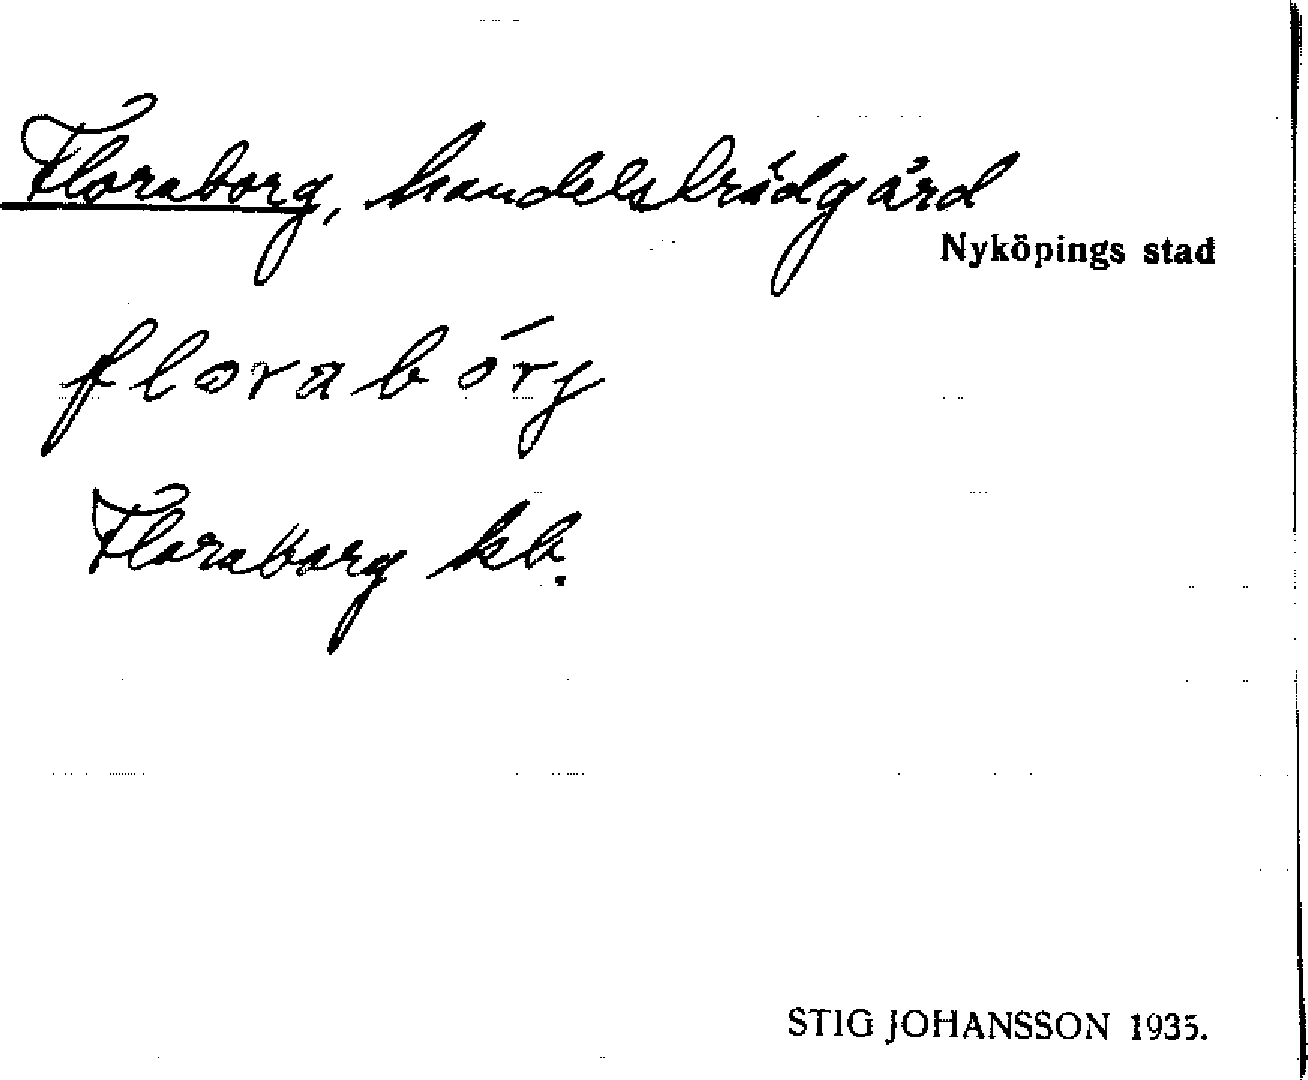 Floraborg, handelsträdgård
Nyköpings stad
florabórg
Floraborg kb.
STIG JOHANSSON 1935.